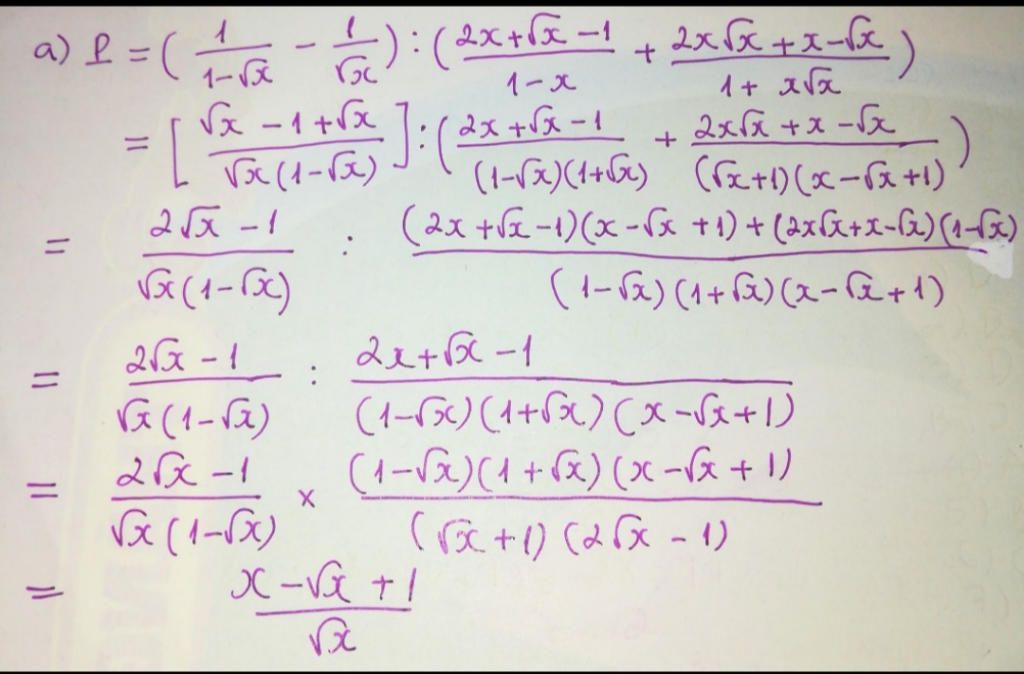 a) P = ( 1/(1-√x) - 1/√x ) : ( (2x+√x-1)/(1-x) + (2x√x+x-√x)/(1+x√x) )
= [ (√x-1+√x)/(√x(1-√x)) ] : ( (2x+√x-1)/((1-√x)(1+√x)) + (2x√x+x-√x)/((√x+1)(x-√x+1)) )
= (2√x-1)/(√x(1-√x)) : ((2x+√x-1)(x-√x+1)+(2x√x+x-√x)(1-√x))/((1-√x)(1+√x)(x-√x+1))
= (2√x-1)/(√x(1-√x)) : (2x+√x-1)/((1-√x)(1+√x)(x-√x+1))
= (2√x-1)/(√x(1-√x)) × ((1-√x)(1+√x)(x-√x+1))/((√x+1)(2√x-1))
= (x-√x+1)/√x